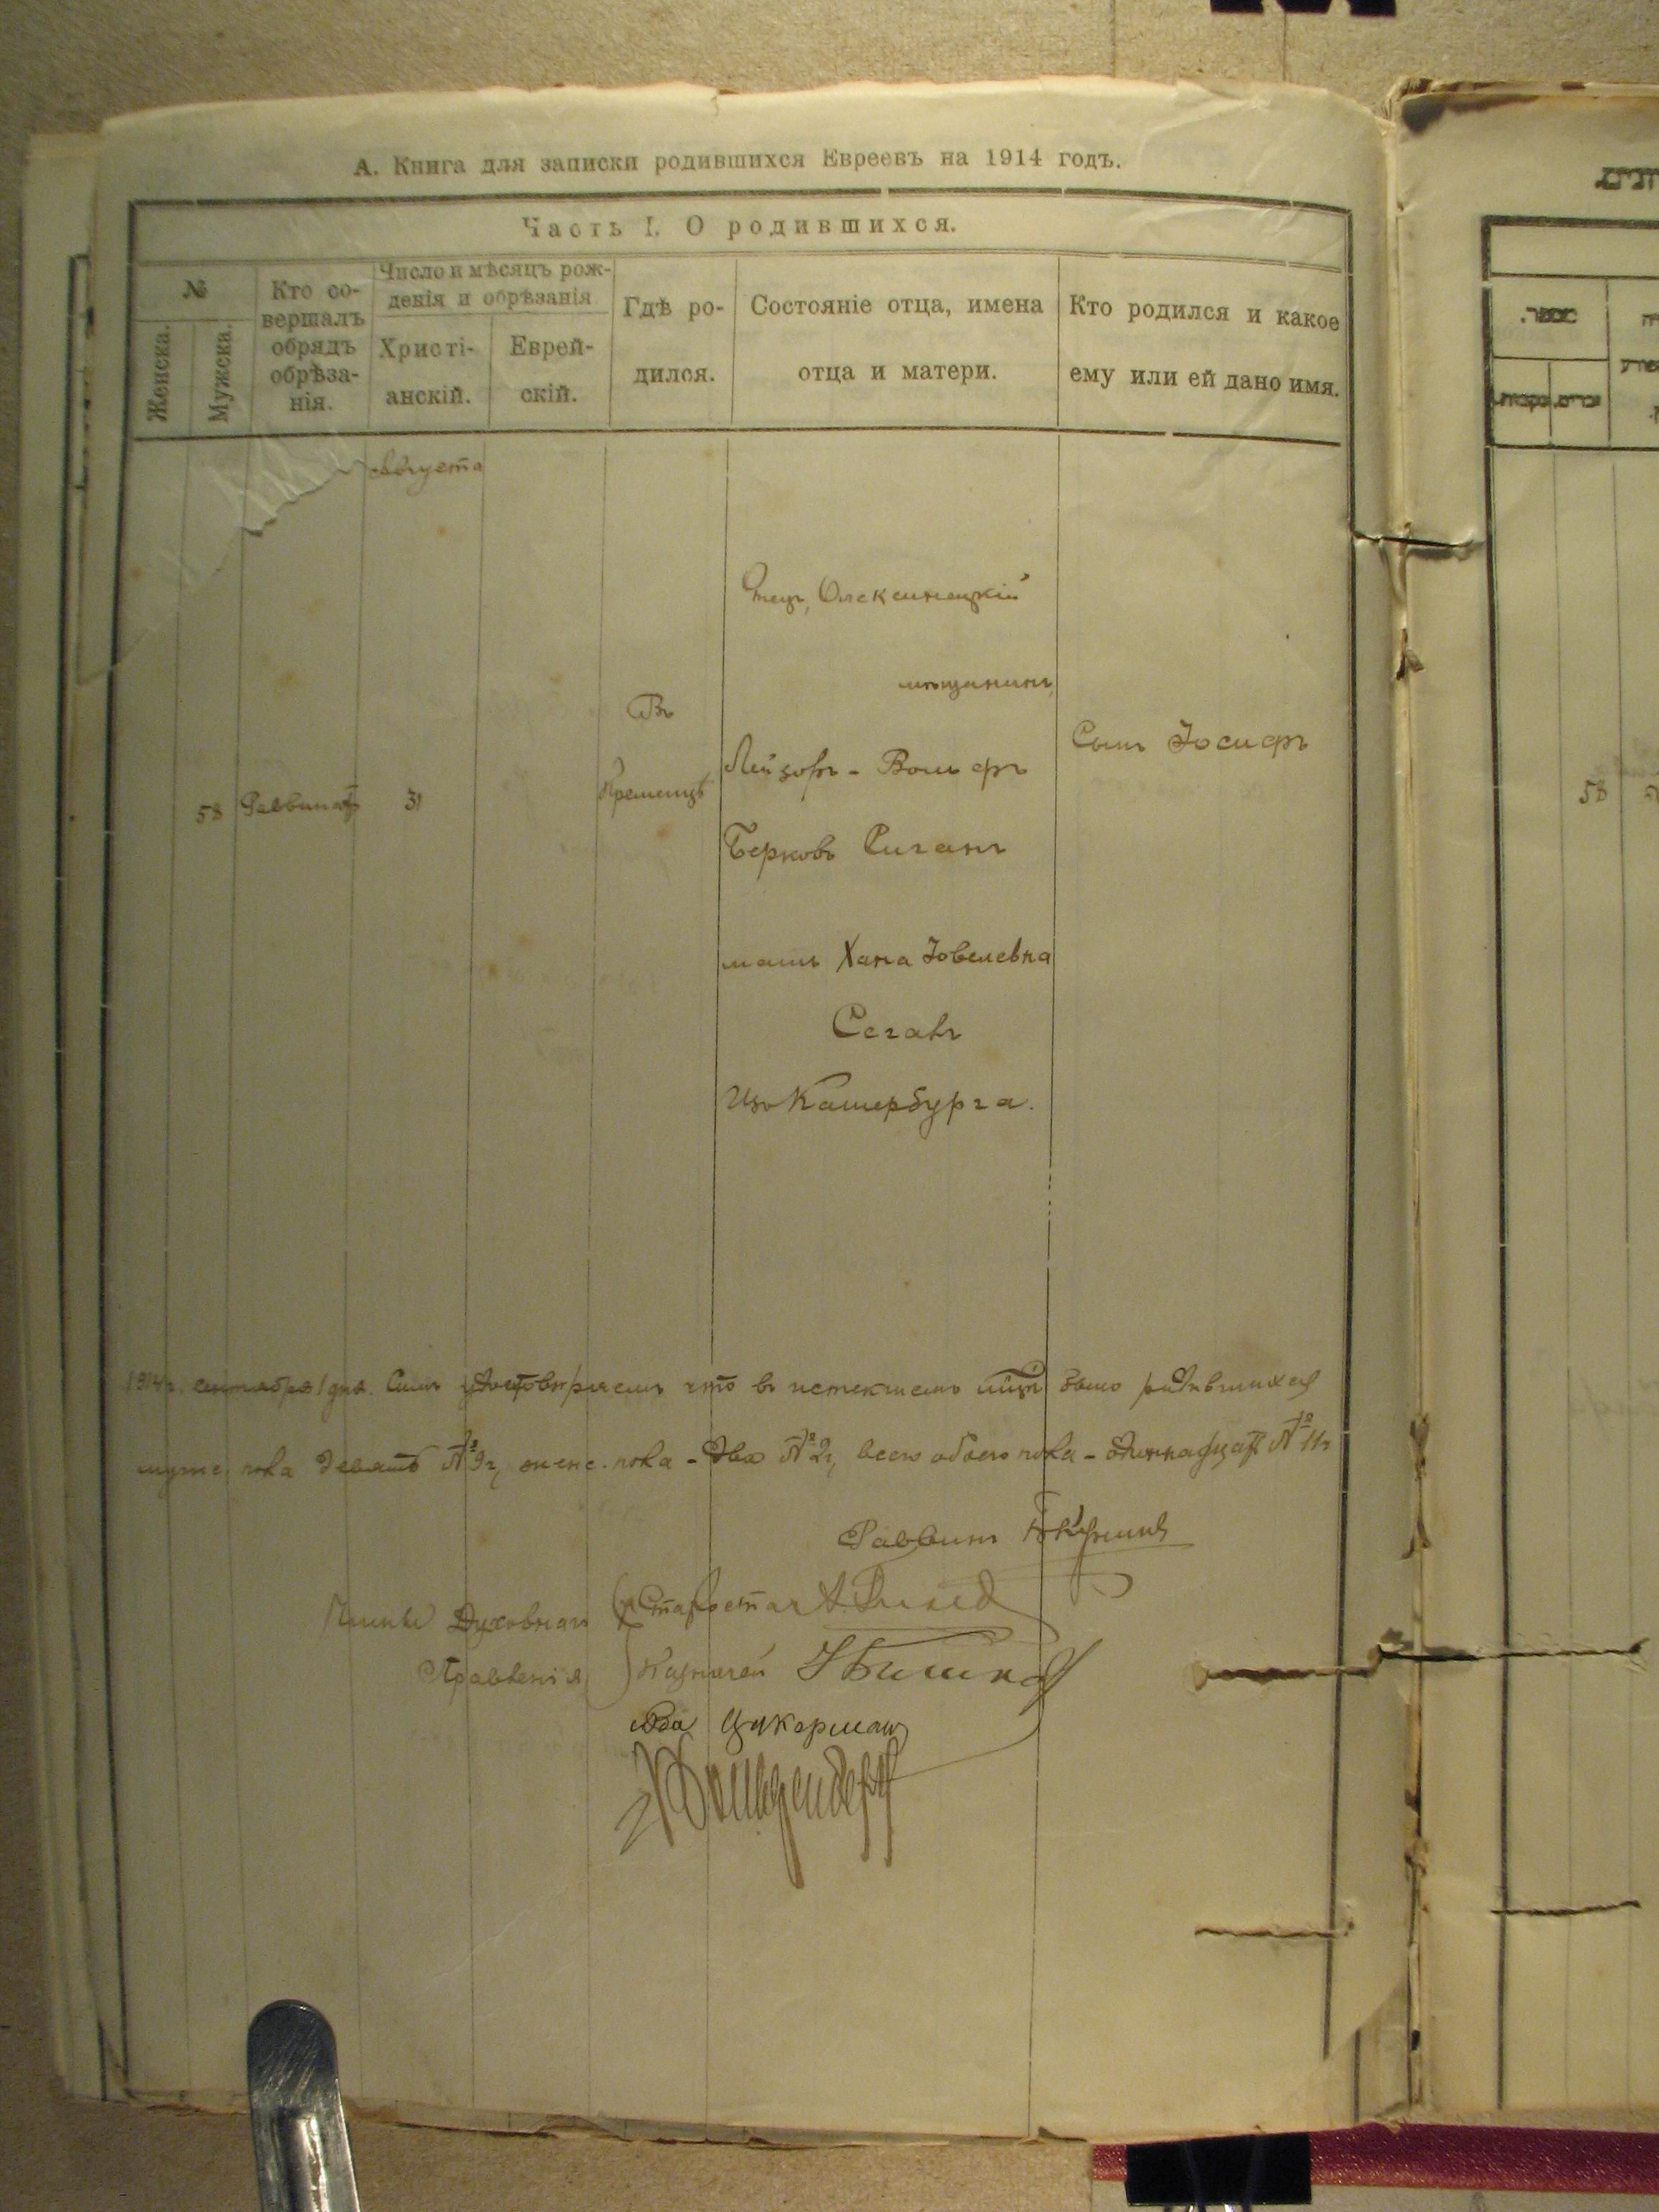 А. Книга для записки родившихся Евреевъ на 1914 годъ.
Часть I. О родившихся.
№
Женска.
Мужска.
Кто со-
вершалъ
обрядъ
обрѣза-
нія.
Число и мѣсяцъ рож-
денія и обрѣзанія
Христі-
анскій.
Еврей-
скій.
Гдѣ ро-
дился.
Состояніе отца, имена
отца и матери.
Кто родился и какое
ему или ей дано имя.
Августа
58
Раввинатъ
31
Въ
Кременцѣ
Отецъ, Олексинецкій
мѣщанинъ
Лейзоръ-Вольфъ
Берковъ Сиганъ
мать Хана Іовелевна
Сегалъ
Изъ Катербурга.
Сынъ Іосифъ
1914 г. сентября 1 дня. Симъ удостовѣряемъ что въ истекшемъ было родившихся
мужс. пола девять № 9, женс. пола - два № 2, всего обоего пола - одиннадцать № 11
Раввинъ
Члены Духовнаго
Правленія
Староста
Казначей
Цукерман
58